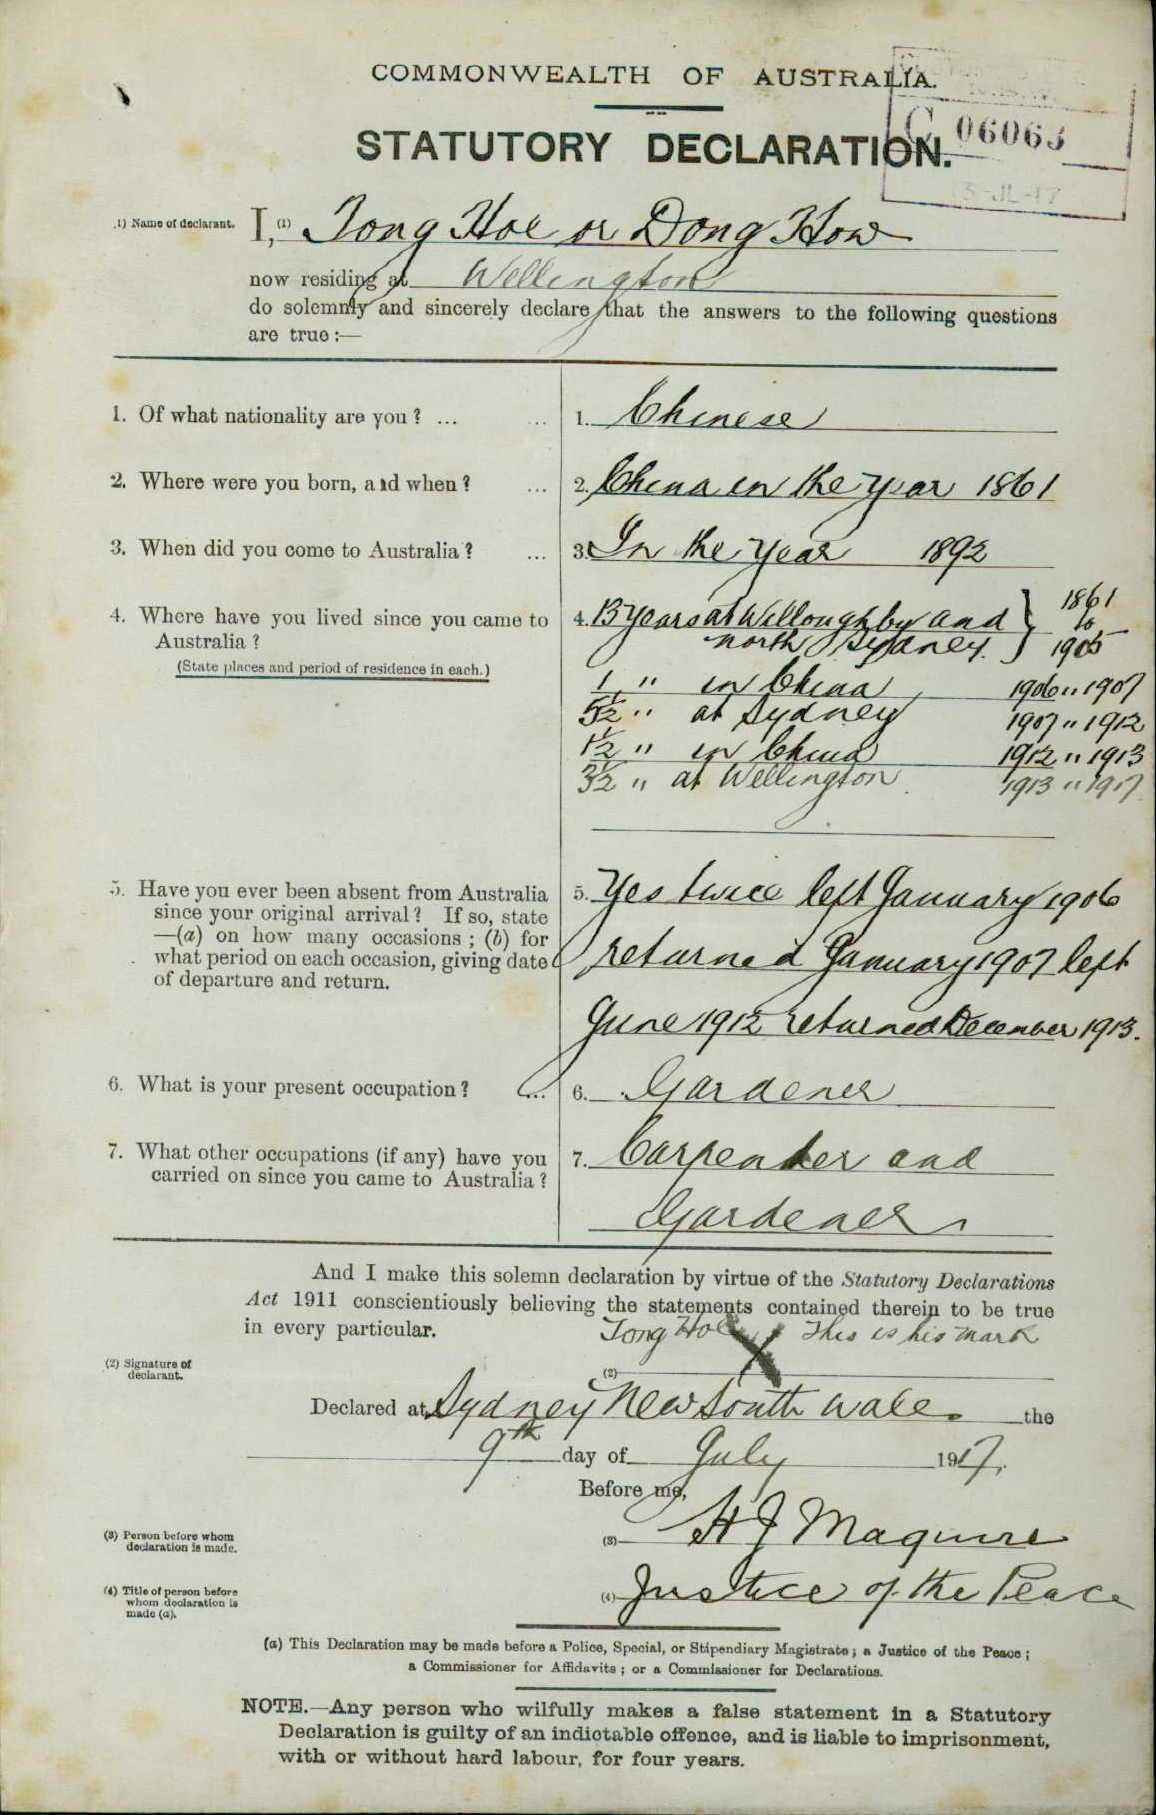 COMMONWEALTH OF AUSTRALIA.
C 06063
STATUTORY DECLARATION.
-JL-17
(1) Name of declarant. I, (1) Tong Hoe or Dong How
now residing at Wellington
do solemnly and sincerely declare that the answers to the following questions
are true :—
1. Of what nationality are you ? ... ... 1. Chinese
2. Where were you born, and when ? ... 2. China in the year 1861
3. When did you come to Australia ? ... 3. In the year 1892
4. Where have you lived since you came to Australia ?
(State places and period of residence in each.)
4. 13 years at Willoughby and north Sydney. } 1861 to 1905
1 " in China 1906 " 1907
5½ " at Sydney 1907 " 1912
1½ " in China 1912 " 1913
3½ " at Wellington 1913 " 1917
5. Have you ever been absent from Australia
since your original arrival ? If so, state
—(a) on how many occasions ; (b) for
what period on each occasion, giving date
of departure and return.
5. Yes twice left January 1906
returned January 1907 left
June 1912 returned December 1913.
6. What is your present occupation ? ... 6. Gardener
7. What other occupations (if any) have you
carried on since you came to Australia ?
7. Carpenter and
Gardener
And I make this solemn declaration by virtue of the Statutory Declarations
Act 1911 conscientiously believing the statements contained therein to be true
in every particular.
Tong Hoe X This is his mark
(2) Signature of
declarant.
(2)
Declared at Sydney New South Wales the
9th day of July 1917.
Before me,
(3) Person before whom
declaration is made.
(3) H J Maguire
(4) Title of person before
whom declaration is
made (a).
(4) Justice of the Peace
(a) This Declaration may be made before a Police, Special, or Stipendiary Magistrate ; a Justice of the Peace ;
a Commissioner for Affidavits ; or a Commissioner for Declarations.
NOTE.—Any person who wilfully makes a false statement in a Statutory
Declaration is guilty of an indictable offence, and is liable to imprisonment,
with or without hard labour, for four years.